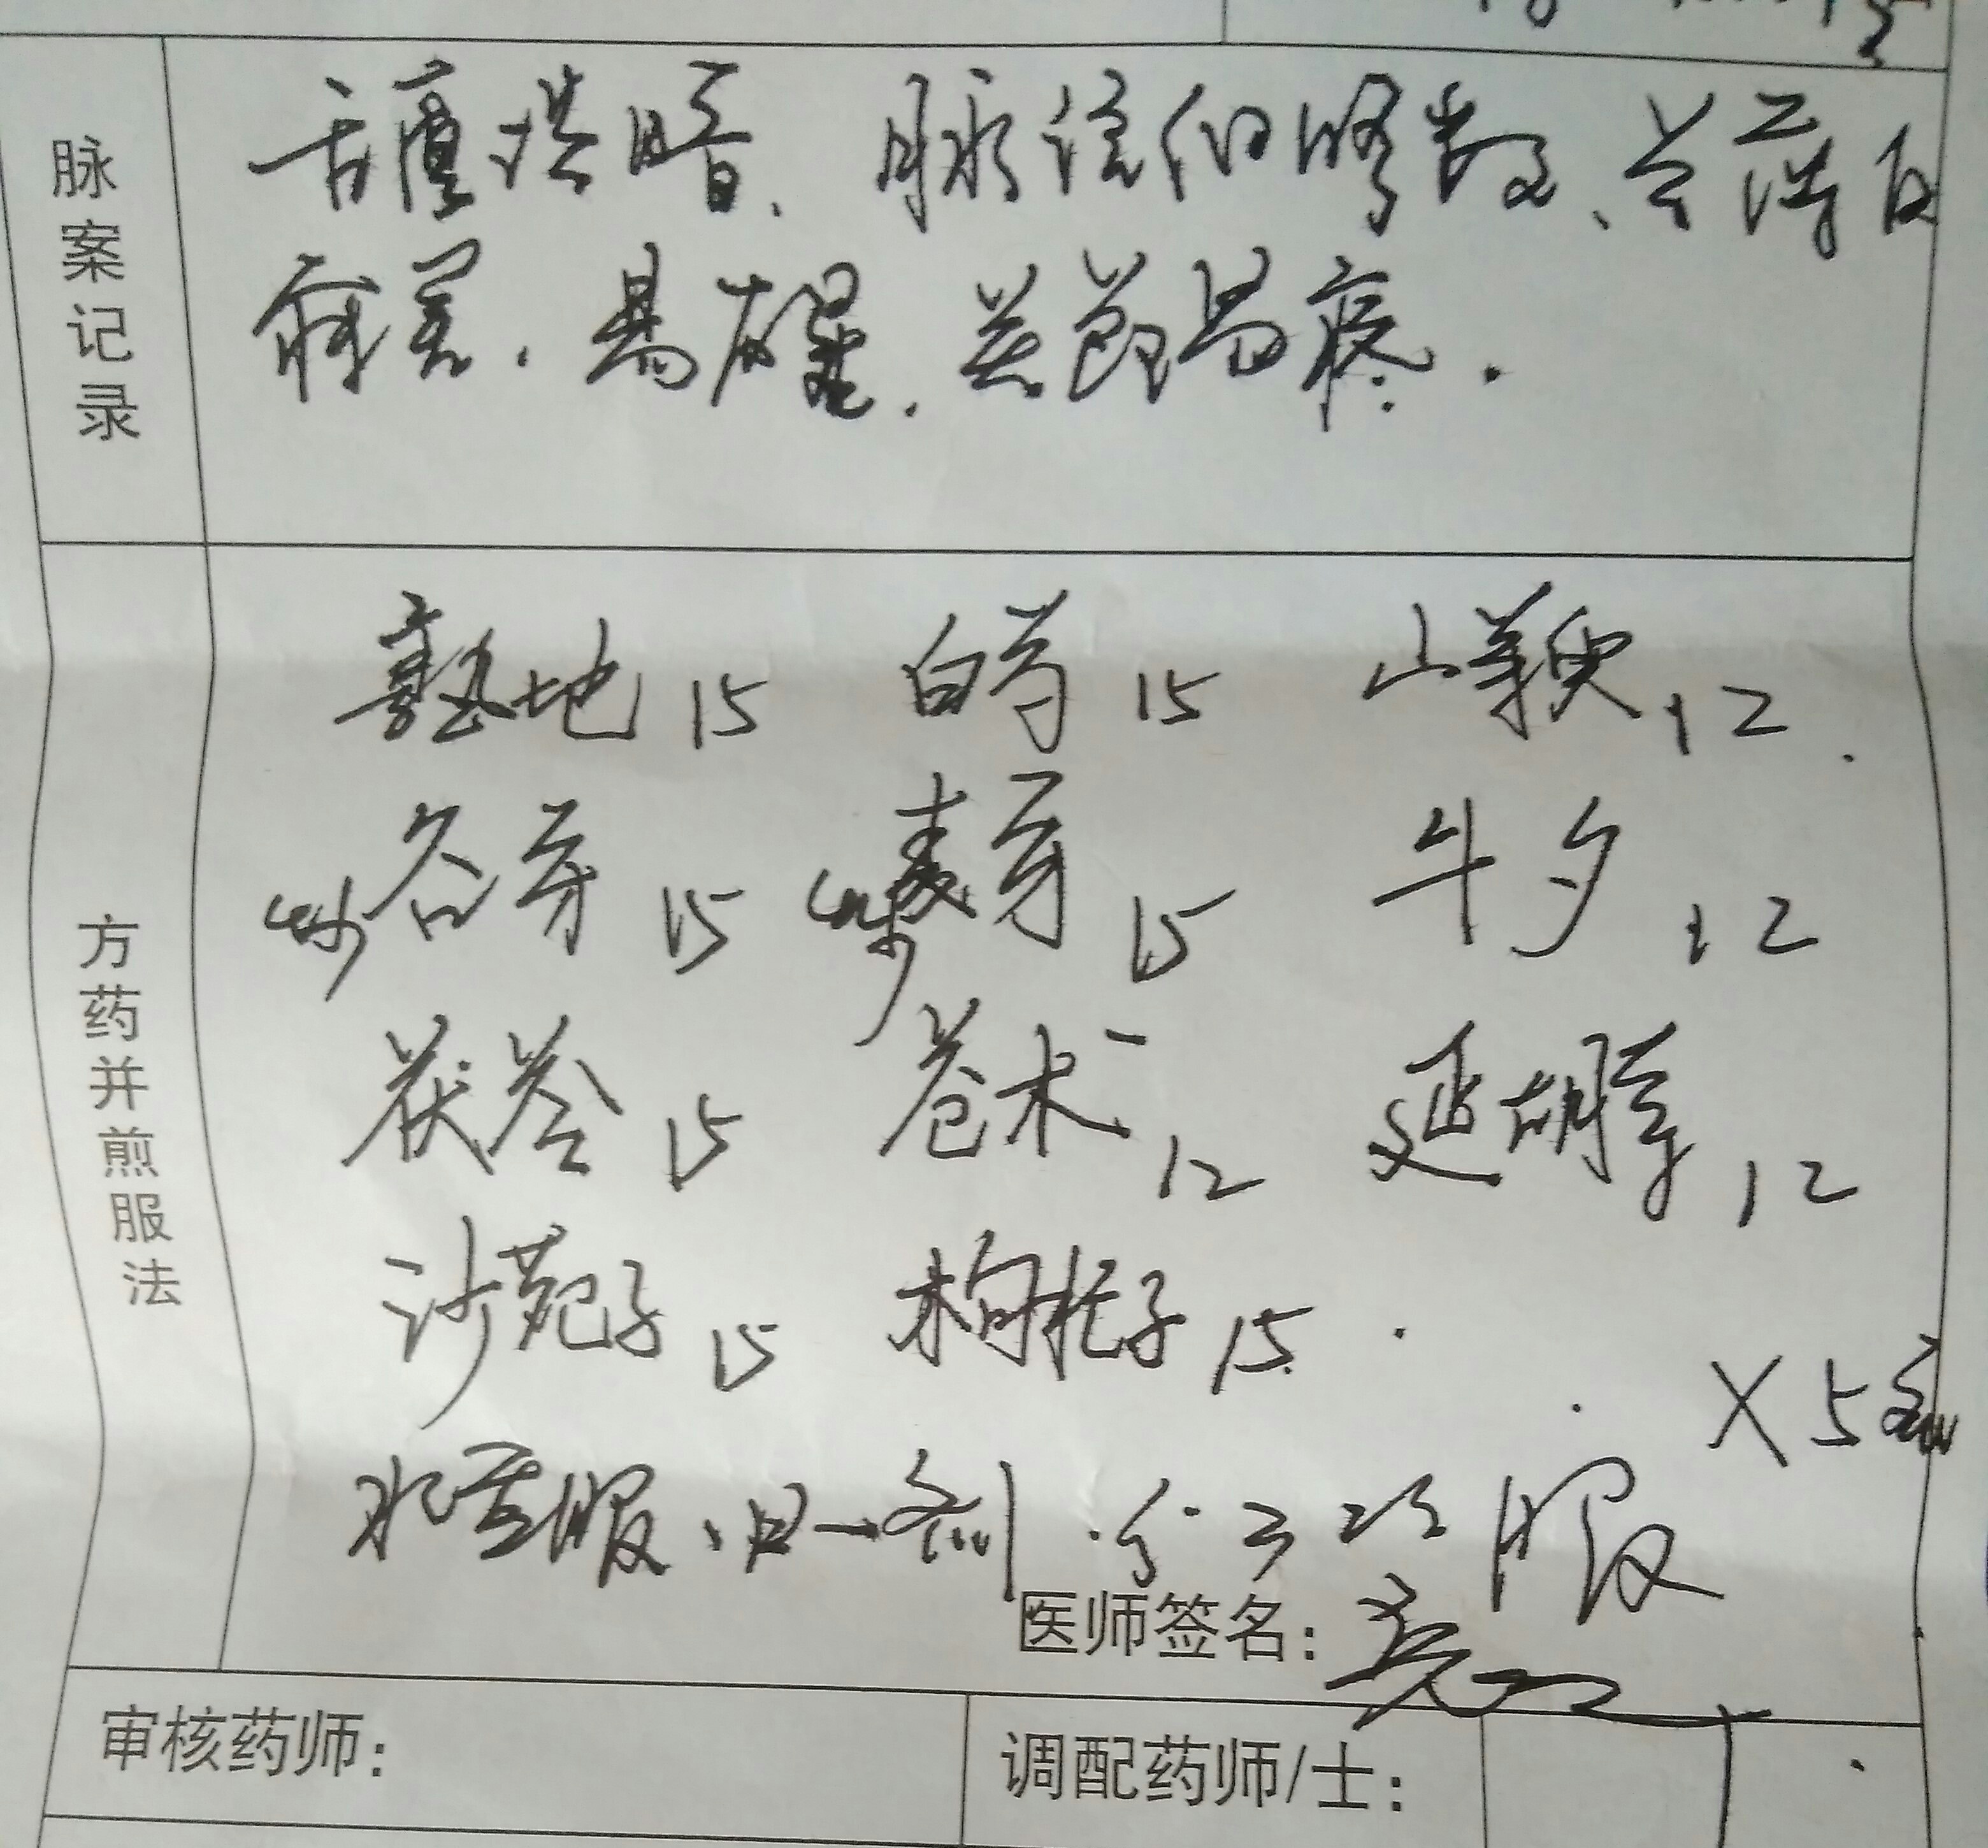 脉案记录
舌质淡暗、脉弦细略数、苔薄白
寐差.易醒.关节易疼.
方药并煎服法
熟地15 白芍15 山萸12
炒谷牙15 炒麦牙15 牛夕12
茯苓15 苍术12 延胡索12
沙苑子15 枸杞子15
×5剂
水煎服、日一剂.分二次服
医师签名:
审核药师: 调配药师/士: